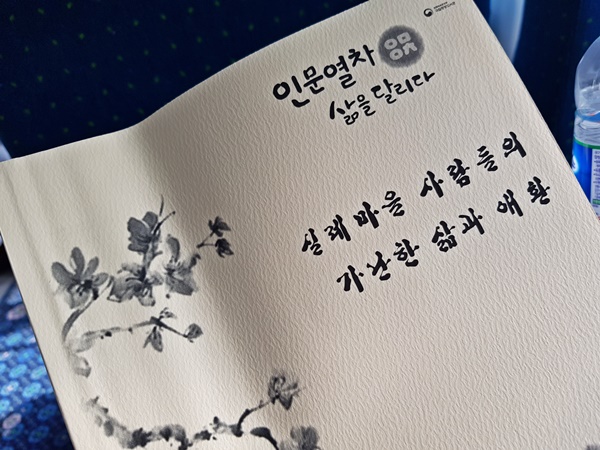 인문열차
삶을 달리다
실레마을 사람들의
가난한 삶과 애환